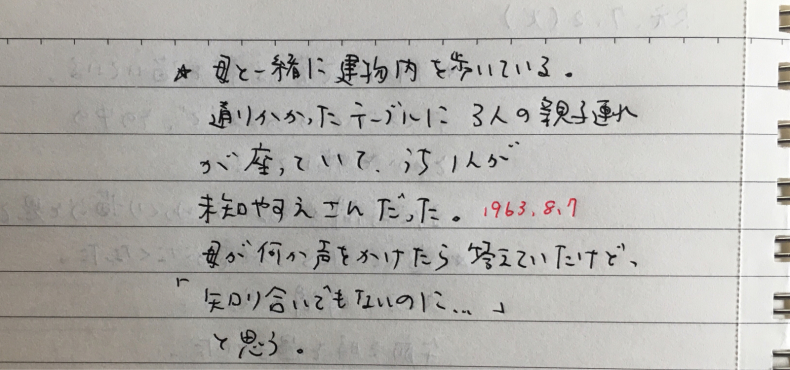 ☆ 母と一緒に建物内を歩いている。
通りかかったテーブルに3人の親子連れ
が座っていて、うち1人が
未知やすえさんだった。 1963.8.7
母が何か声をかけたら答えていたけど、
「知り合いでもないのに…」
と思う。